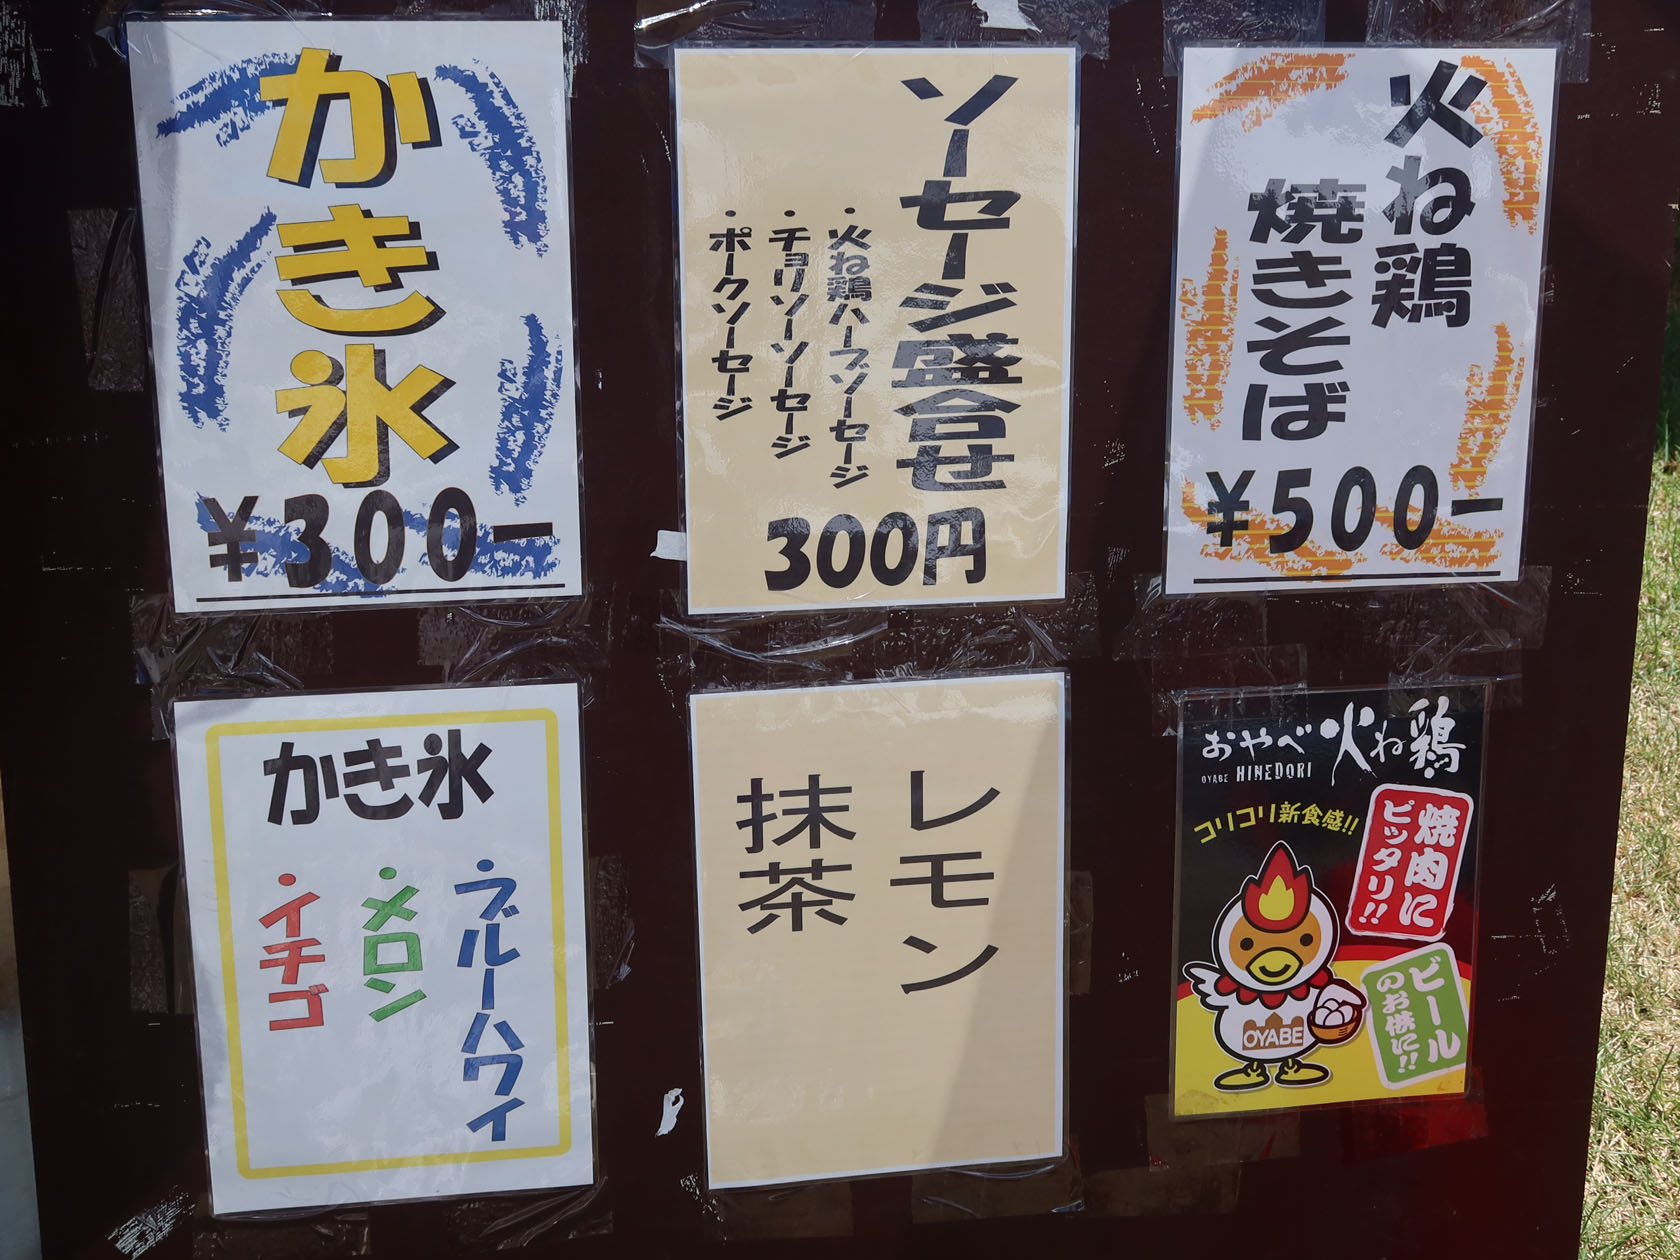 かき氷
¥300-
ソーセージ盛合せ
・火ね鶏ハーブソーセージ
・チョリソーソーセージ
・ポークソーセージ
300円
火ね鶏
焼きそば
¥500-
かき氷
・ブルーハワイ
・メロン
・イチゴ
レモン
抹茶
おやべ火ね鶏
OYABE HINEDORI
コリコリ新食感!!
焼肉に
ピッタリ!!
ビール
のお供に!!
OYABE